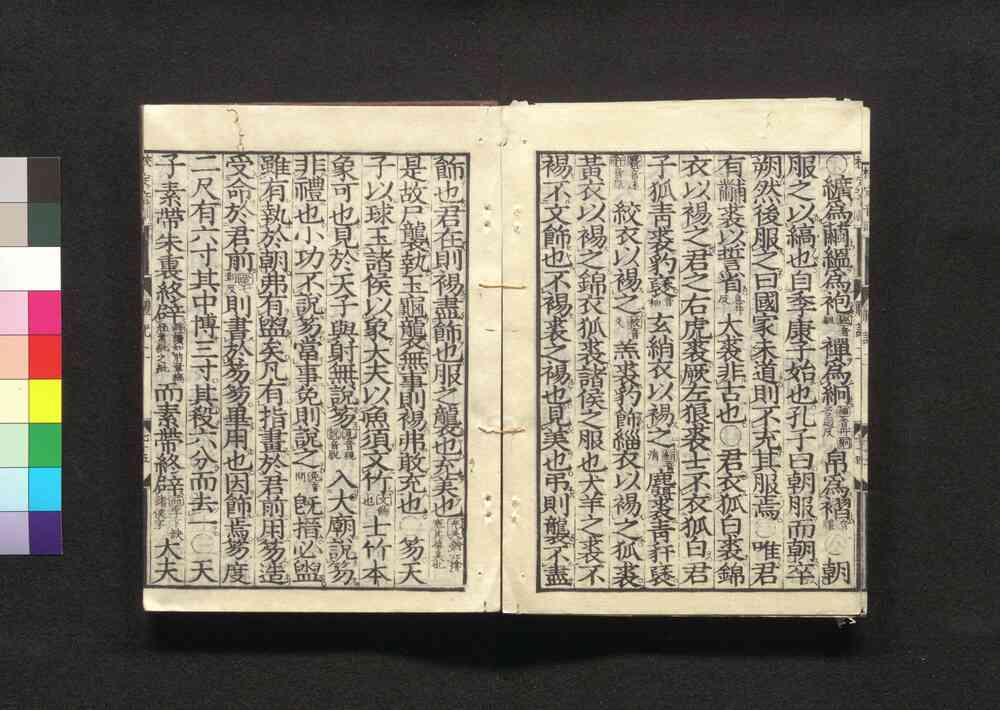 ○纊爲繭縕爲袍襌爲絅帛爲褶○朝
服之以縞也自季康子始也孔子曰朝服而朝卒
朔然後服之曰國家未道則不充其服焉○唯君
有黼裘以誓省大裘非古也○君衣狐白裘錦
衣以裼之君之右虎裘厥左狼裘士不衣狐白君
子狐靑裘豹褎玄綃衣以裼之麛裘靑豻褎
絞衣以裼之羔裘豹飾緇衣以裼之狐裘
黃衣以裼之錦衣狐裘諸侯之服也犬羊之裘不
裼不文飾也不裼裘之裼也見美也弔則襲不盡
飾也君在則裼盡飾也服之襲也充美也
是故尸襲執玉龜襲無事則裼弗敢充也○笏天
子以球玉諸侯以象大夫以魚須文竹士竹本
象可也見於天子與射無說笏入大廟說笏
非禮也小功不說笏當事免則說之旣搢必盥
雖有執於朝弗有盥矣凡有指畫於君前用笏造
受命於君前則書於笏笏畢用也因飾焉笏度
二尺有六寸其中博三寸其殺六分而去一○天
子素帶朱裏終辟而素帶終辟大夫